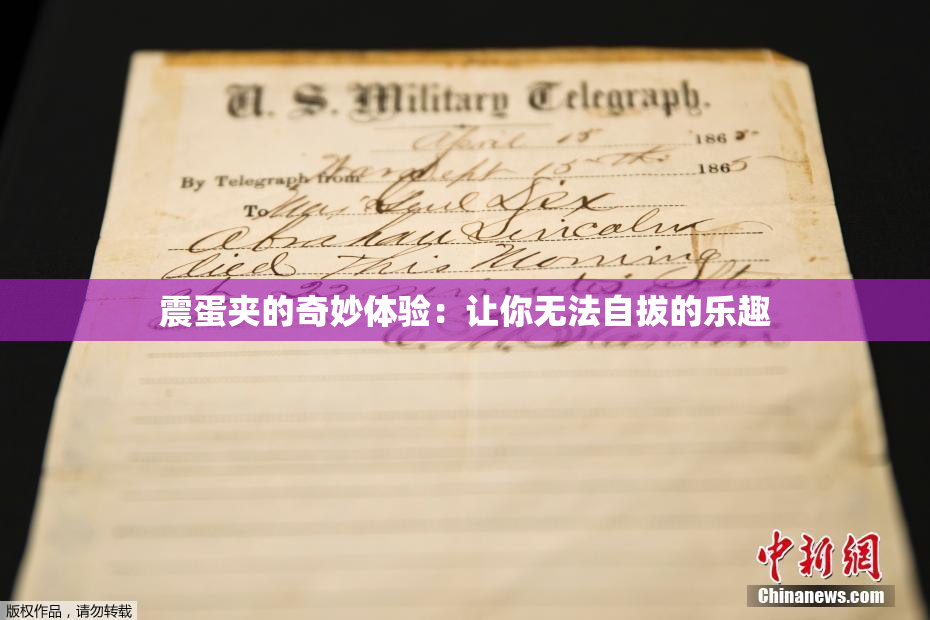 U. S. Military Telegraph.
April 15 1865
By Telegraph from War Dept 15th 1865
To Maj Genl Dix
Abraham Lincoln
died This Morning
at 22 minutes after
震蛋夹的奇妙体验：让你无法自拔的乐趣
E. M. Stanton
中新网
Chinanews.com
版权作品，请勿转载